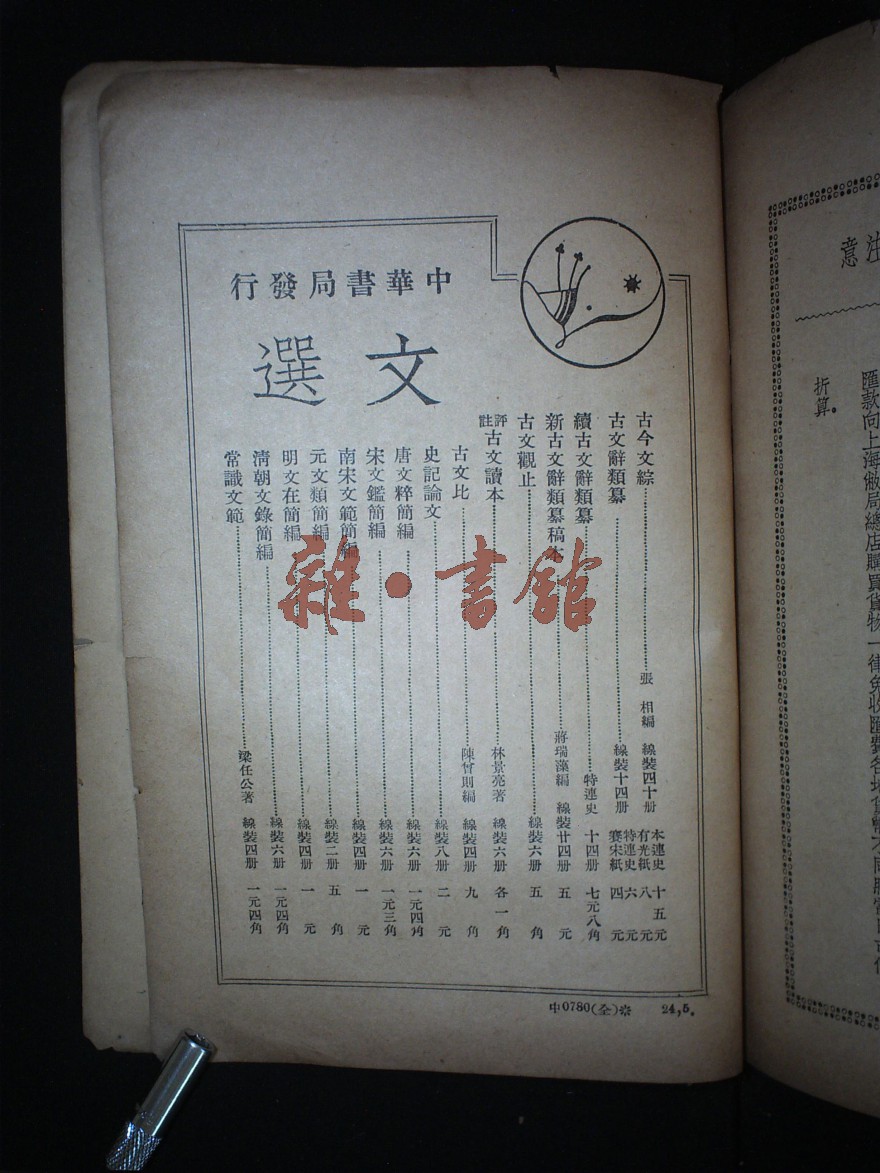 中華書局發行
文選
古今文綜 張相編 線裝四十册 本連史 十五元
有光紙 八元
古文辭類纂 線裝十四册 特連史 六元
賽宋紙 四元
續古文辭類纂 特連史 十四册 七元八角
新古文辭類纂稿本 蔣瑞藻編 線裝廿四册 五元
古文觀止 線裝六册 五角
評註古文讀本 林景亮著 線裝六册 各一角
古文比 陳曾則編 線裝四册 九角
史記論文 線裝八册 二元
唐文粹簡編 線裝六册 一元四角
宋文鑑簡編 線裝六册 一元三角
南宋文範簡編 線裝四册 一元
元文類簡編 線裝二册 五角
明文在簡編 線裝四册 一元
清朝文錄簡編 線裝六册 一元四角
常識文範 梁任公著 線裝四册 一元四角
中0780(全) 24,5.
雜·書館
注意
匯款向上海敝局總店購買貨物一律免收匯費各地貨幣不同
折算。